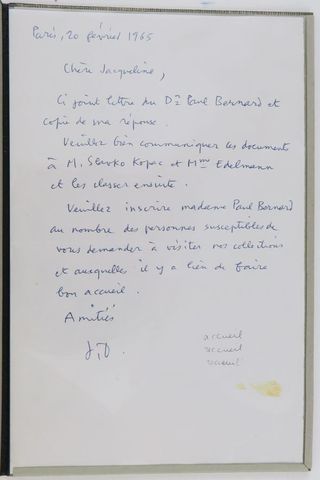 Paris, 20 février 1965
Chère Jacqueline,
Ci joint lettre du Dr Paul Bernard et
copie de ma réponse.
Veuillez bien communiquer les documents
à M. Slavko Kopac et Mme Edelmann
et les classer ensuite.
Veuillez inscrire madame Paul Bernard
au nombre des personnes susceptibles de
vous demander à visiter nos collections
et auxquelles il y a lieu de faire
bon accueil.
Amitiés
J.D.
accueil
accueil
accueil